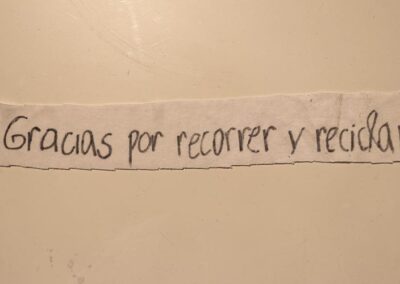 Gracias por recorrer y reciclar